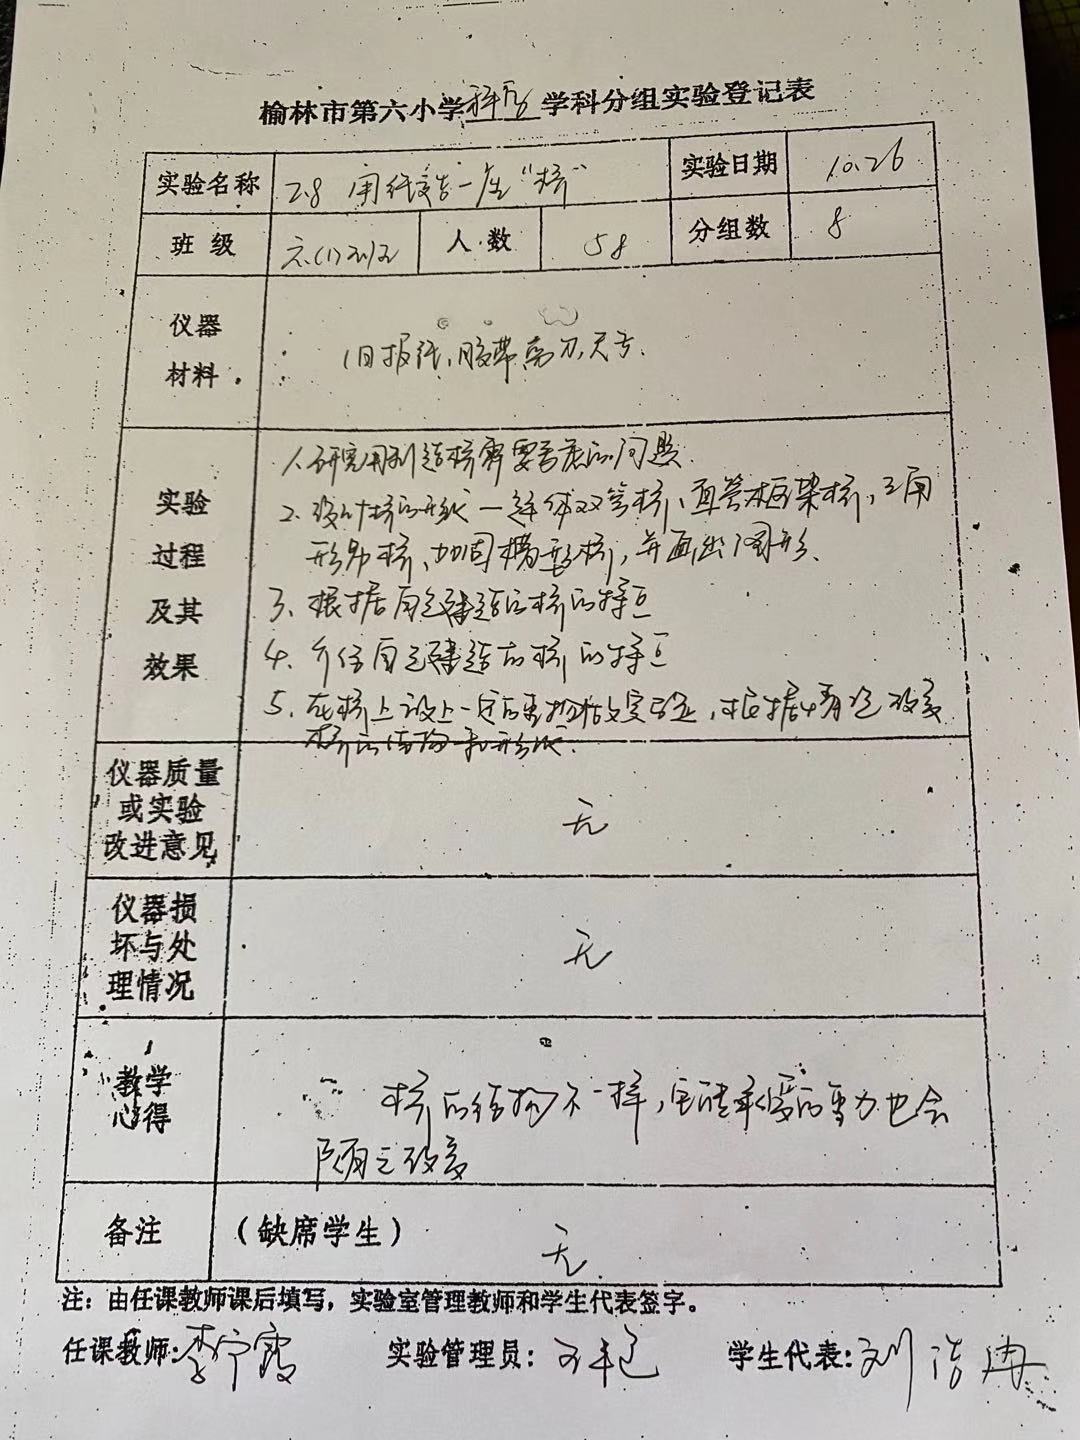 榆林市第六小学科学学科分组实验登记表
实验名称 2.8 用纸造一座“桥” 实验日期 10.26
班级 六(1)班 人数 58 分组数 8
仪器
材料
旧报纸、胶带、剪刀、尺子.
实验
过程
及其
效果
1.研究用纸造桥需要考虑的问题.
2.设计桥的形状 双管桥、直管框架桥、三角
形 桥、加固 形桥,并画出图形.
3.根据自己建造的桥的特点
4.介绍自己建造的桥的特点
5.在桥上放上一定的重物 实验,根据情况改变
桥的结构和形状.
仪器质量
或实验
改进意见
无
仪器损
坏与处
理情况
无
教学
心得
桥的结构不一样,它能承受的重力也会
随之改变
备注 (缺席学生) 无
注:由任课教师课后填写,实验室管理教师和学生代表签字。
任课教师:李宁霞 实验管理员: 学生代表:刘